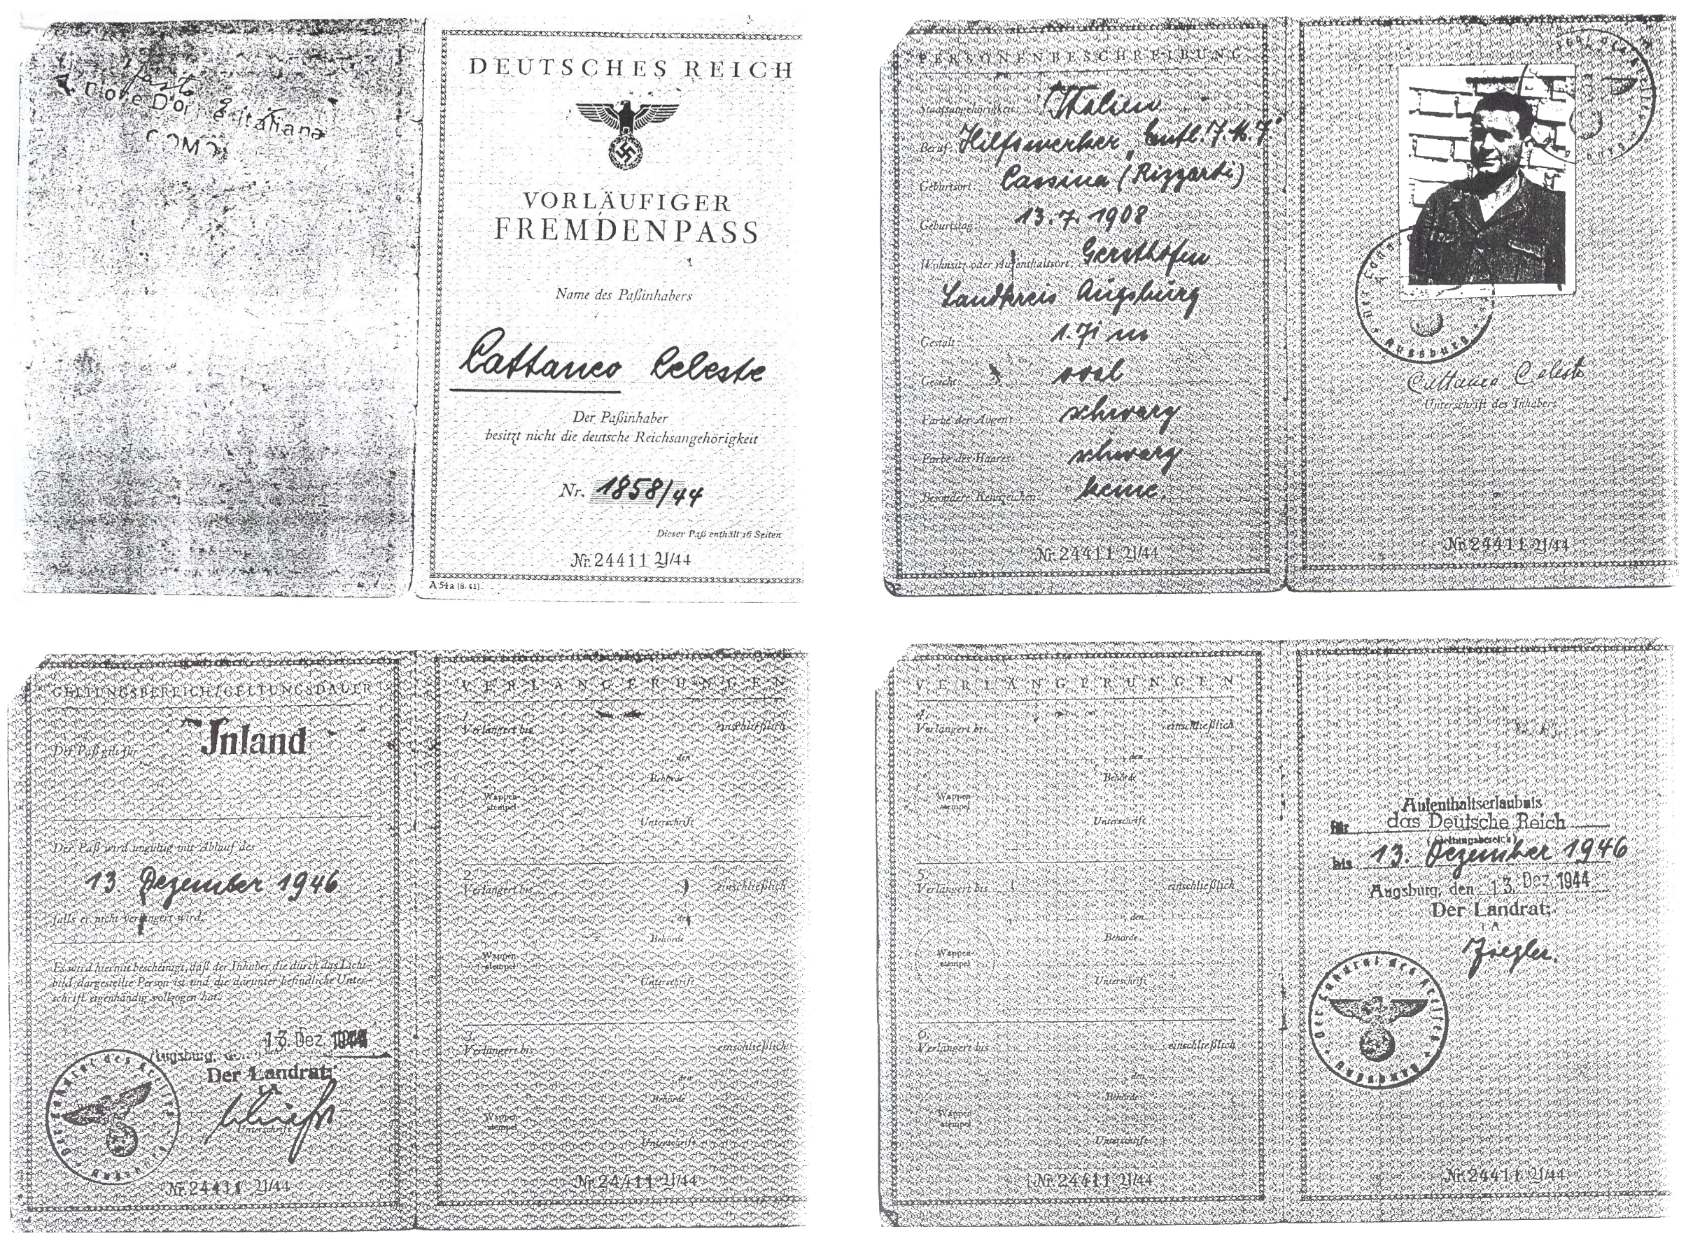 Posto
Fiore D'or Egitaliana
COMO
DEUTSCHES REICH
VORLÄUFIGER
FREMDENPASS
Name des Paßinhabers
Cattaneo Celeste
Der Paßinhaber
besitzt nicht die deutsche Reichsangehörigkeit
Nr. 1858/44
Dieser Paß enthält 16 Seiten
Nr. 24411 A/44
A 54a (8. 41).
PERSONENBESCHREIBUNG
Staatsangehörigkeit: Italien
Beruf: Hilfswerker
Geburtsort: Cassina (Rizzardi)
Geburtstag: 13.7.1908
Wohnsitz oder Aufenthaltsort: Gersthofen
Landkreis Augsburg
Gestalt: 1.71 m
Gesicht: oval
Farbe der Augen: schwarz
Farbe des Haares: schwarz
Besondere Kennzeichen: keine.
Nr. 24411 A/44
Augsburg
Cattaneo Celeste
Unterschrift des Inhabers
Nr. 24411 A/44
GELTUNGSBEREICH/GELTUNGSDAUER
Der Paß gilt für Inland
Der Paß wird ungültig mit Ablauf des
13 Dezember 1946
falls er nicht verlängert wird.
Es wird hiermit bescheinigt, daß der Inhaber die durch das Licht-
bild dargestellte Person ist und die darunter befindliche Unter-
schrift eigenhändig vollzogen hat.
Augsburg, den 13. Dez. 1944
Der Landrat:
I A
Unterschrift
Der Landrat des Kreises Augsburg
Nr. 24411 A/44
VERLÄNGERUNGEN
1.
Verlängert bis einschließlich
, den
Behörde
Wappen-
stempel
Unterschrift
2.
Verlängert bis einschließlich
, den
Behörde
Wappen-
stempel
Unterschrift
3.
Verlängert bis einschließlich
, den
Behörde
Wappen-
stempel
Unterschrift
Nr. 24411 A/44
VERLÄNGERUNGEN
4.
Verlängert bis einschließlich
, den
Behörde
Wappen-
stempel
Unterschrift
5.
Verlängert bis einschließlich
, den
Behörde
Wappen-
stempel
Unterschrift
6.
Verlängert bis einschließlich
, den
Behörde
Wappen-
stempel
Unterschrift
Nr. 24411 A/44
Aufenthaltserlaubnis
für das Deutsche Reich
(Geltungsbereich)
bis 13. Dezember 1946
Augsburg, den 13. Dez. 1944
Der Landrat:
I A
Ziegler.
Der Landrat des Kreises Augsburg
Nr. 24411 A/44